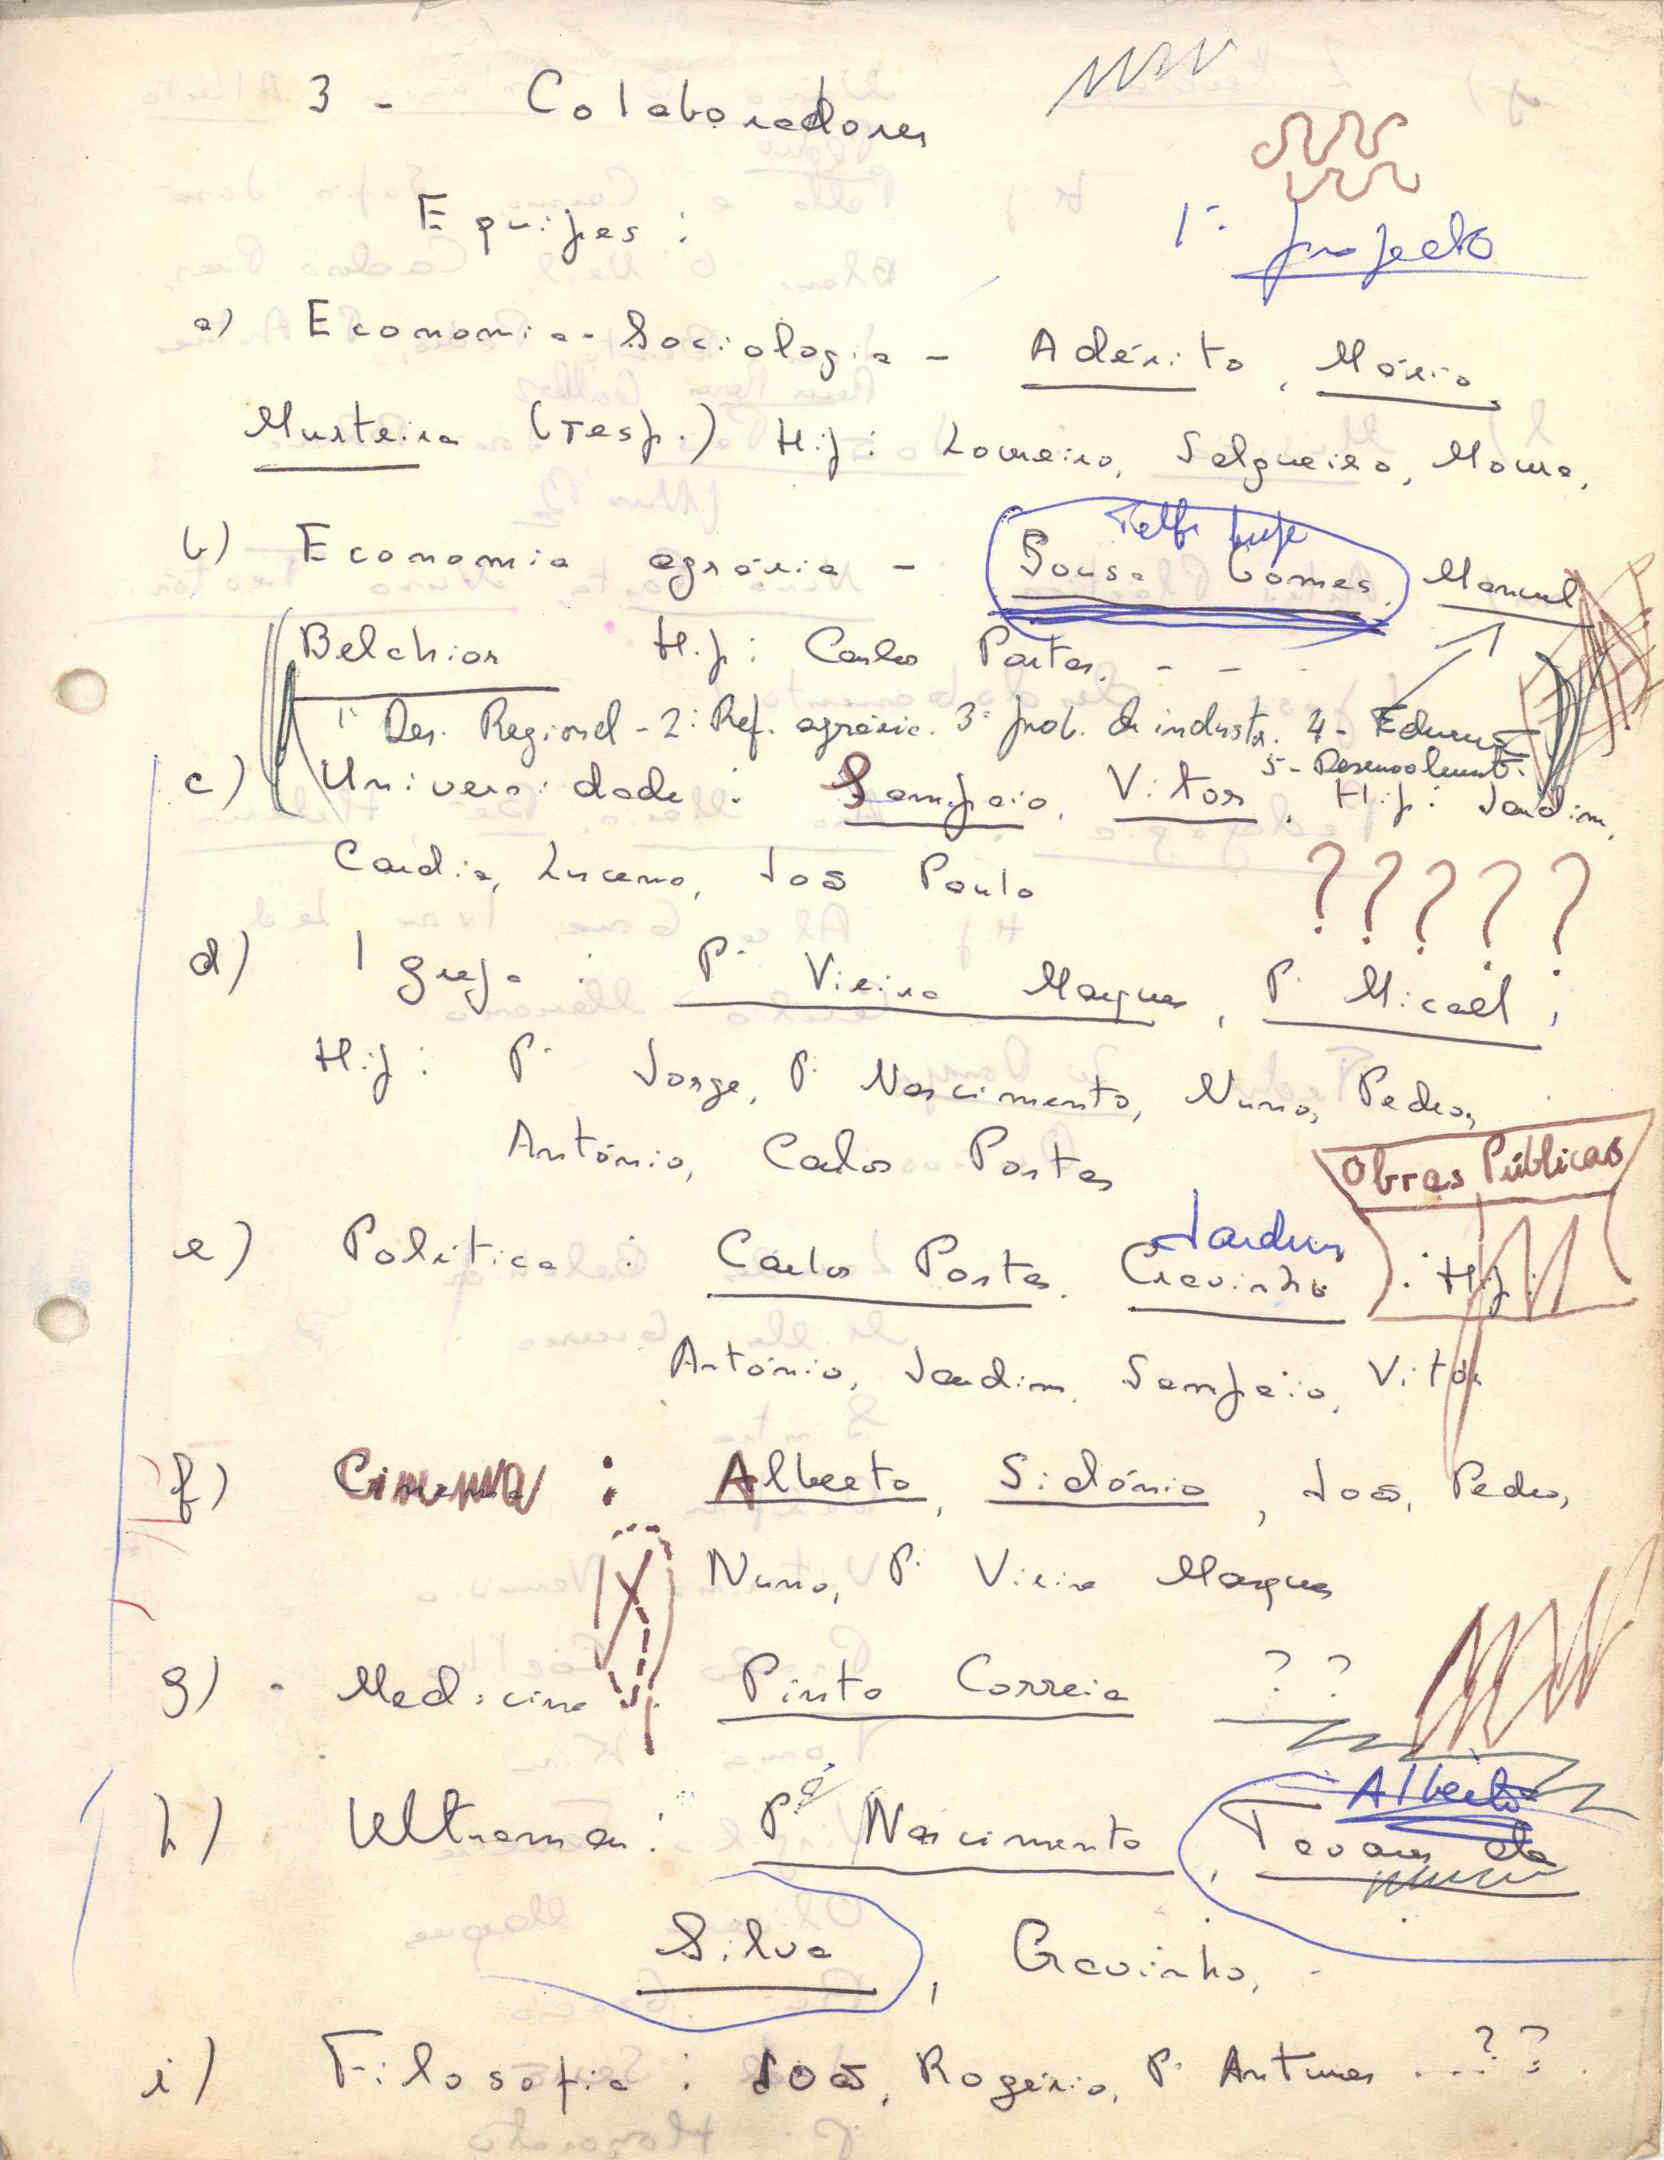 3 - Colaboradores
Equipes :
1º projecto
a) Economia-Sociologia - Adérito, Mário
Murteira (resp.) Hip: Loureiro, Salgueiro, Moura,
Telf. hoje
b) Economia agrária - Sousa Gomes, Manuel
Belchior Hip: Carlos Portas. - -
1º Des. Regional - 2º Ref. agrária. 3º prob. da industr. 4 -
5 - Desenvolvimt.
c) Universidade : Sampaio, Vitor. Hip: Jardim,
Cardia, Lucena, João Paulo
? ? ? ? ?
d) Igreja : P. Vieira Marques, P. Micael,
Hip: P. Jorge, P. Nascimento, Nuno, Pedro,
António, Carlos Portas
Obras Públicas
Jardim
e) Política : Carlos Portas, Cravinho. Hip:
António, Jardim, Sampaio, Vitor
f) Cinema : Alberto, Sidónio, João, Pedro,
Nuno, P. Vieira Marques
g) - Medicina : Pinto Correia ? ?
Alberto
h) Ultramar : Pe Nascimento, Tavares da
Silva, Cravinho,
i) Filosofia : João, Rogério, P. Antunes ...? ?